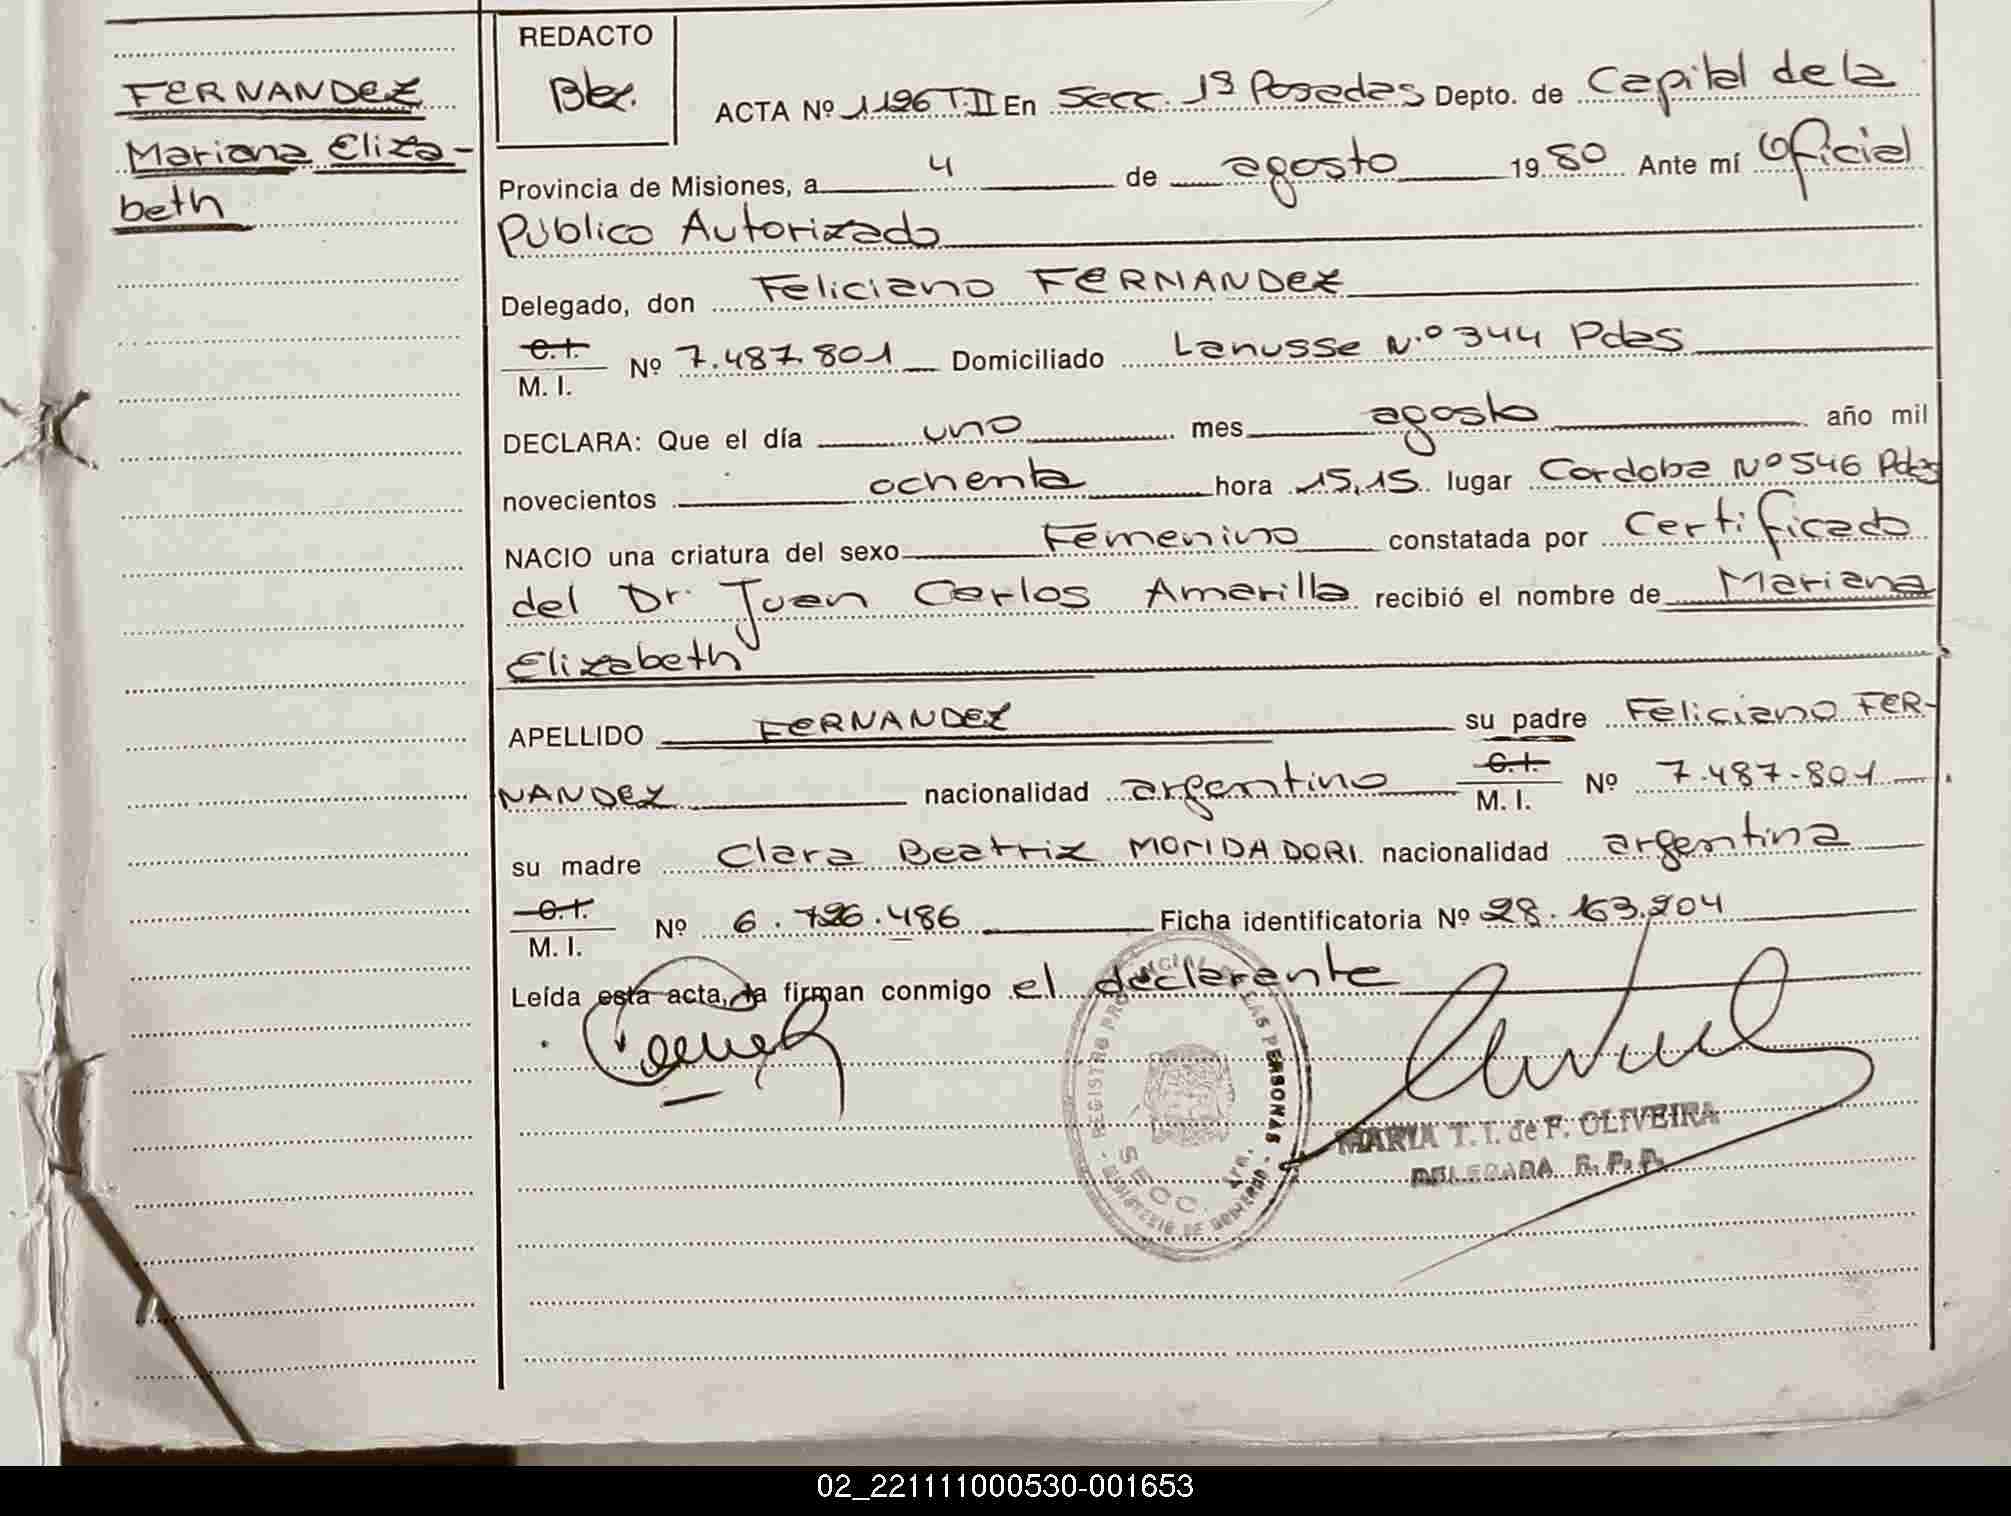 FERNANDEZ
Mariana Eliza-
beth
REDACTO
ACTA Nº 1196 T.II En Secc. 1ª Posadas Depto. de Capital de la
Provincia de Misiones, a 4 de agosto 1980 Ante mí Oficial
Público Autorizado
Delegado, don Feliciano FERNANDEZ
C.I.
M. I. Nº 7.487.801 Domiciliado Lanusse N.º 344 Pdas
DECLARA: Que el día uno mes agosto año mil
novecientos ochenta hora 15,15 lugar Cordoba Nº 546 Pdas
NACIO una criatura del sexo Femenino constatada por Certificado
del Dr. Juan Carlos Amarilla recibió el nombre de Mariana
Elizabeth
APELLIDO FERNANDEZ su padre Feliciano FER-
NANDEZ nacionalidad argentino C.I.
M. I. Nº 7.487.801
su madre Clara Beatriz MONDADORI. nacionalidad argentina
C.I.
M. I. Nº 6.726.486 Ficha identificatoria Nº 28.163.204
Leída esta acta, la firman conmigo el declarante
REGISTRO PROVINCIAL DE LAS PERSONAS
SECC. 1ra.
MINISTERIO DE GOBIERNO
MARIA T. I. de F. OLIVEIRA
DELEGADA R. P. P.
02_221111000530-001653